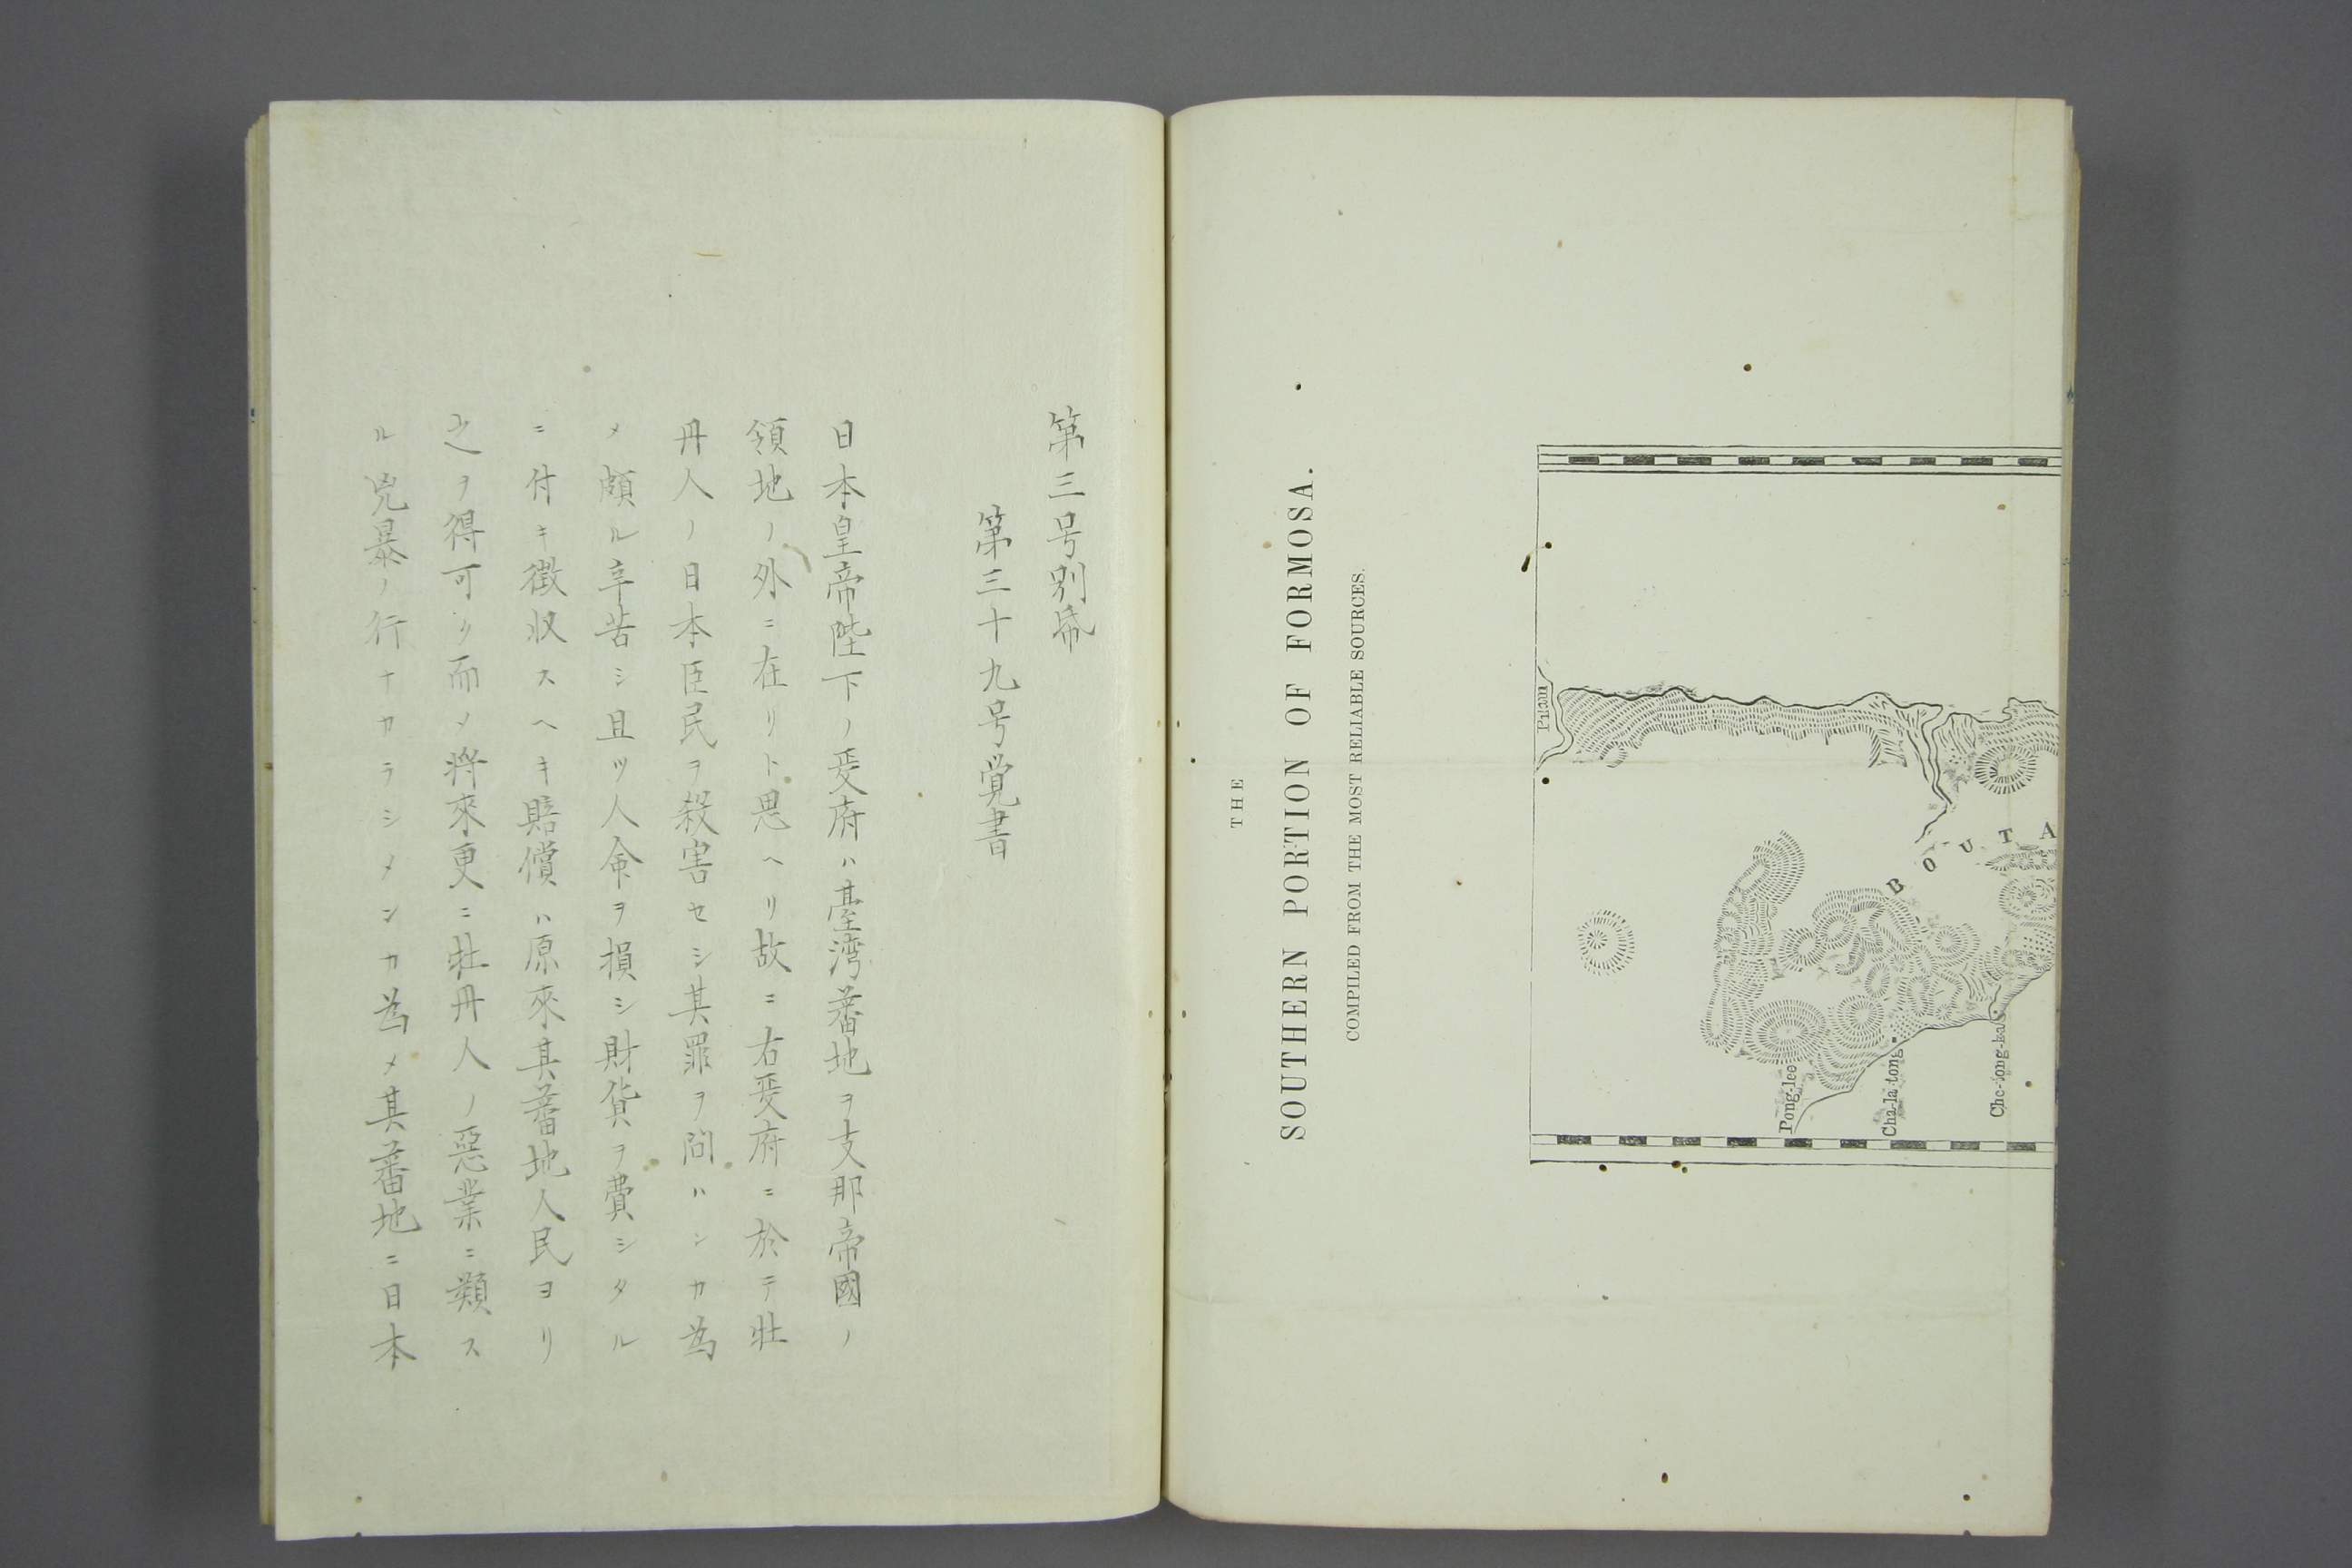 THE
SOUTHERN PORTION OF FORMOSA.
COMPILED FROM THE MOST RELIABLE SOURCES.
Pilam
BOUTA
Pong-lee
Cha-la-tong
Che-tong-ka
第三号別帋
第三十九号覚書
日本皇帝陛下ノ政府ハ臺湾蕃地ヲ支那帝國ノ
領地ノ外ニ在リト思ヘリ故ニ右政府ニ於テ牡
丹人ノ日本臣民ヲ殺害セシ其罪ヲ問ハンカ為
メ頗ル辛苦シ且ツ人命ヲ損シ財貨ヲ費シタル
ニ付キ徴収スヘキ賠償ハ原來其蕃地人民ヨリ
之ヲ得可シ而メ將來更ニ牡丹人ノ惡業ニ類ス
ル兇暴ノ行ナカラシメンカ為メ其蕃地ニ日本